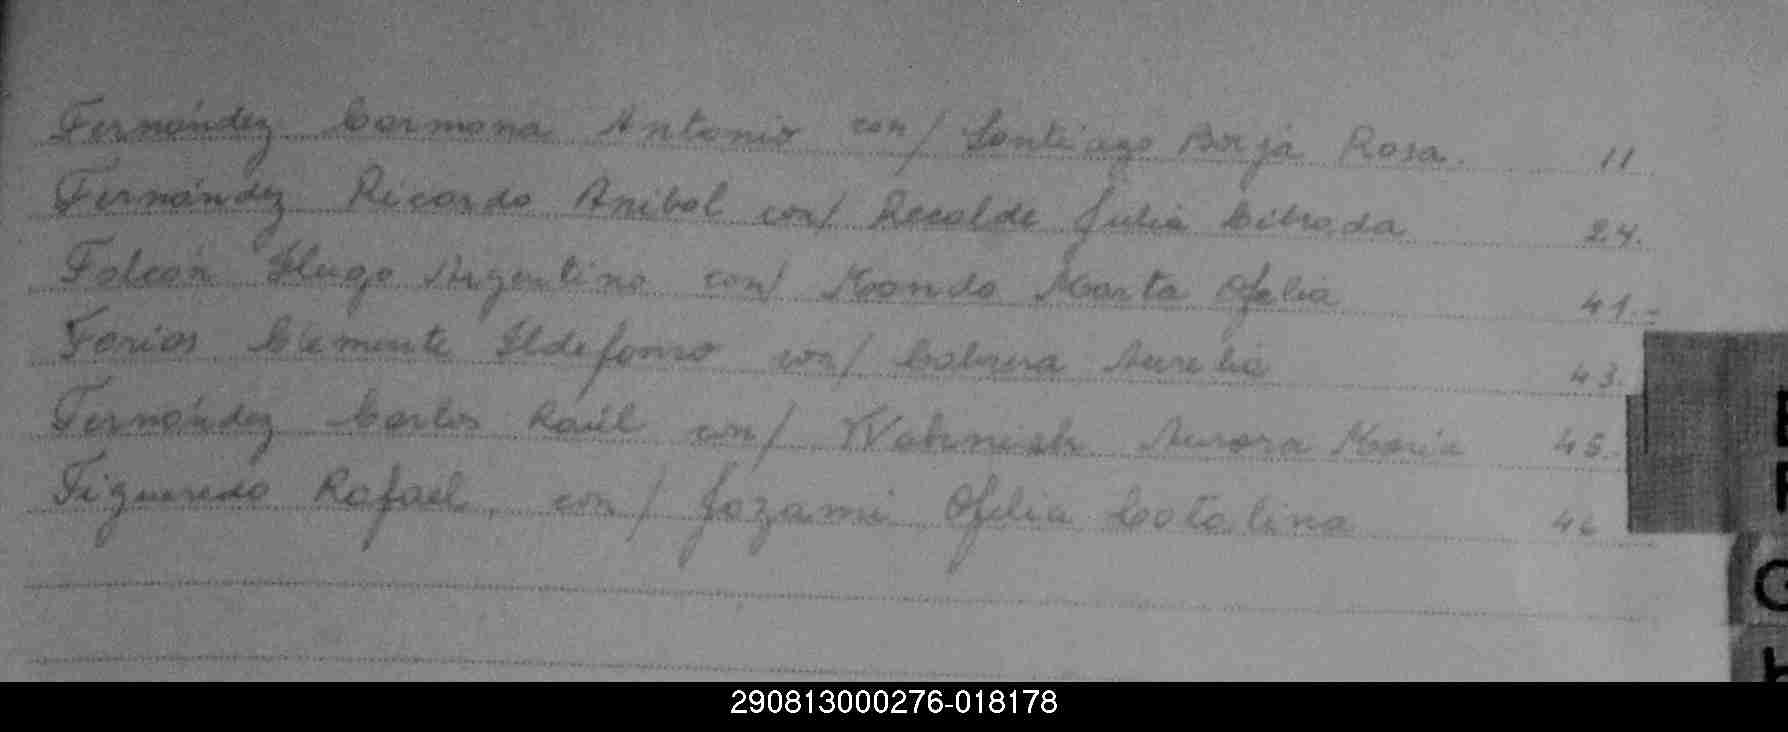 Fernández Carmona Antonio con/ Santiago Borja Rosa. 11
Fernández Ricardo Anibal con/ Recalde Julia Librada 24.
Falcón Hugo Argentino con/ Mando Marta Ofelia 41.-
Farias Clemente Ildefonso con/ Cabrera Aurelia 43.
Fernández Carlos Raúl con/ Aurora María 45.
Figueredo Rafael, con/ Jozami Ofelia Catalina 46
290813000276-018178